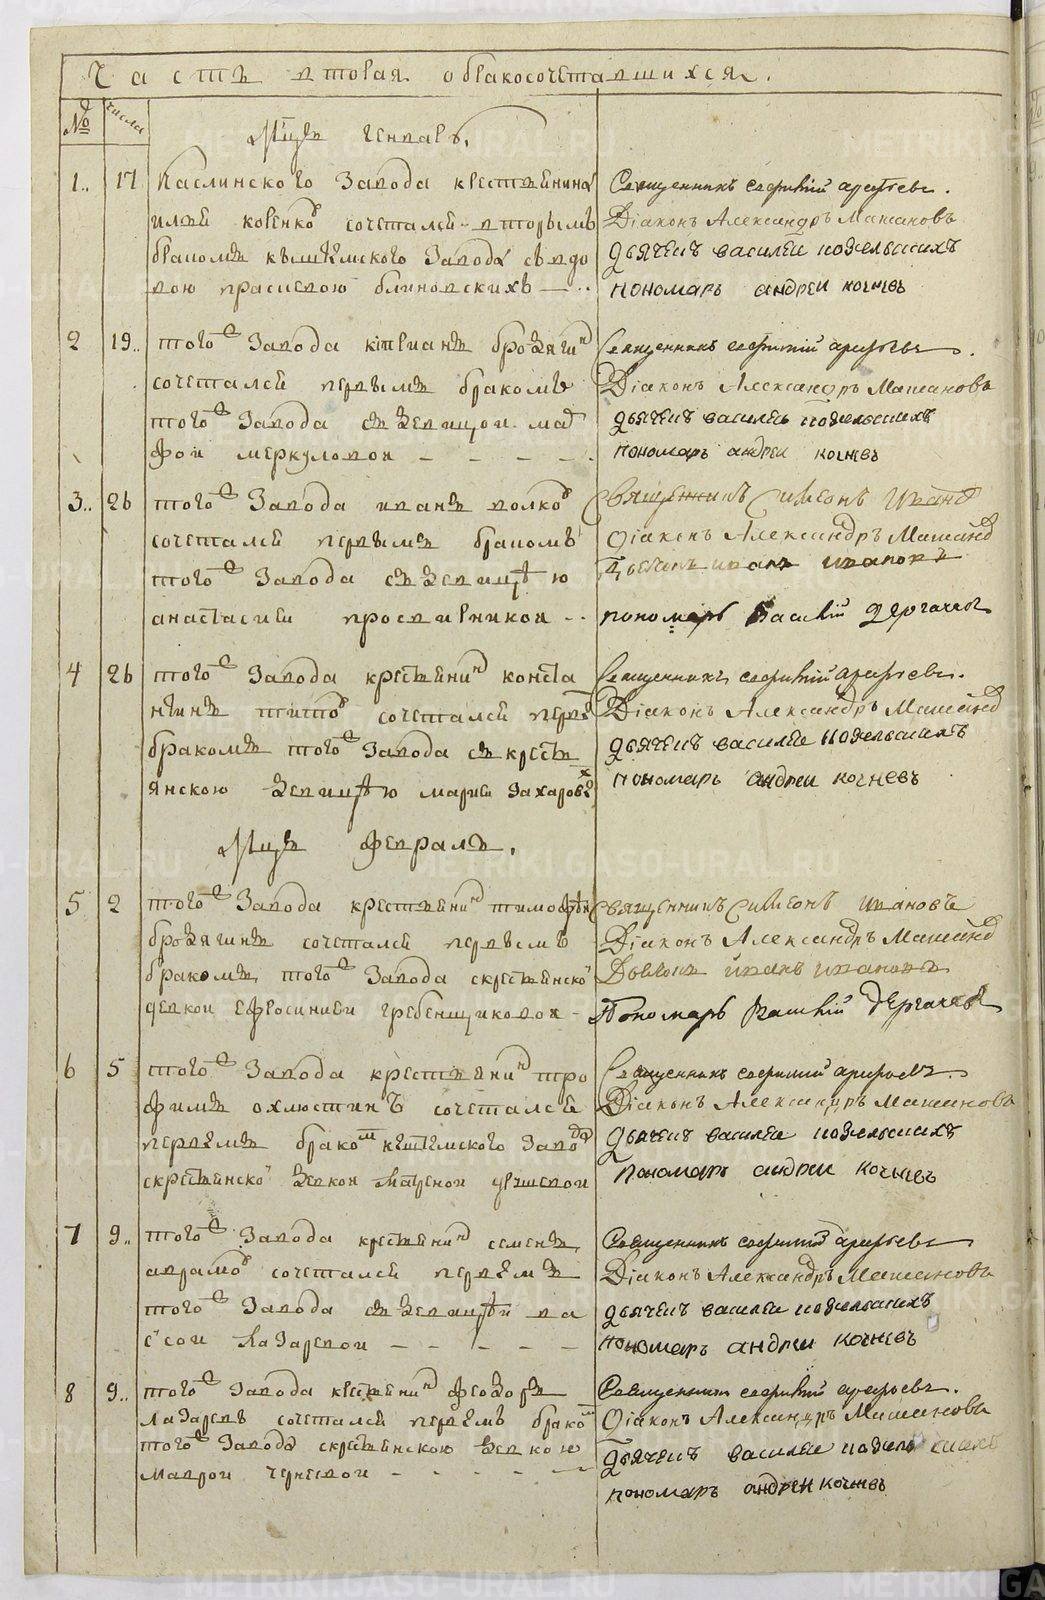 Часть вторая о бракосочетавшихся.
№ числа
Мцъ генварь.
1.. 17 Каслинского завода крестьянинъ
илья коренков сочетался вторымъ
бракомъ кыштымского завода съ вдо
вою прасковою блиновскихъ
Священникъ сергий арефьевъ.
Діаконъ Александръ Машановъ
дьячекъ василеи подкльскихъ
пономарь андреи кочневъ
2 19.. того завода киприанъ бродягин
сочетался первымъ бракомъ
того завода съ девицои мат
фои меркуловои
Священникъ арефьевъ.
Діаконъ Александръ Машановъ
дьячекъ василеи
пономарь андреи кочневъ
3.. 26 того завода иванъ волков
сочетался первымъ бракомъ
того завода съ девицѣю
анастасиеи просвирникои
Священникъ Симеонъ Иванов
Діаконъ Александръ Машанов
Дьячекъ иванъ ивановъ
пономарь Василій Дергачев
4 26 того завода крестьянин конста
нтинъ титов сочетался первы
бракомъ того завода съ кресть
янскою девицѣю мариеи захаровых
Священникъ арефьевъ.
Діаконъ Александръ Машанов
дьячекъ василеи
пономарь андреи кочневъ
Мцъ февраль.
5 2 того завода крестьянин тимофѣи
бродягинъ сочетался первымъ
бракомъ того завода скрестьянско
девкои ефросиниеи гребенщиковои
Священникъ Симеонъ ивановъ
Діаконъ Александръ Машанов
Дьячекъ иванъ ивановъ
Пономарь Василій Дергачев
6 5 того завода крестьянин тро
фимъ охлюстинъ сочетался
первымъ браком кыштымского завода
скрестьянско девкои матреной
Священникъ арефьевъ.
Діаконъ Александръ Машановъ
дьячекъ василеи
Пономарь андреи кочневъ
7 9.. того завода крестьянин семенъ
аврамов сочетался первымъ
того завода съ девицѣй ва
ссои лазаревои
Священникъ арефьевъ
Діаконъ Александръ Машановъ
дьячекъ василеи
пономарь андреи кочневъ
8 9.. того завода крестьянин феодоръ
лазаревъ сочетался первымъ браком
того завода скрестьянскою девкою
маврои черневои
Священникъ арефьевъ.
Діаконъ Александръ Машановъ
дьячекъ василеи
пономарь андреи кочневъ
METRIKI.GASO-URAL.RU